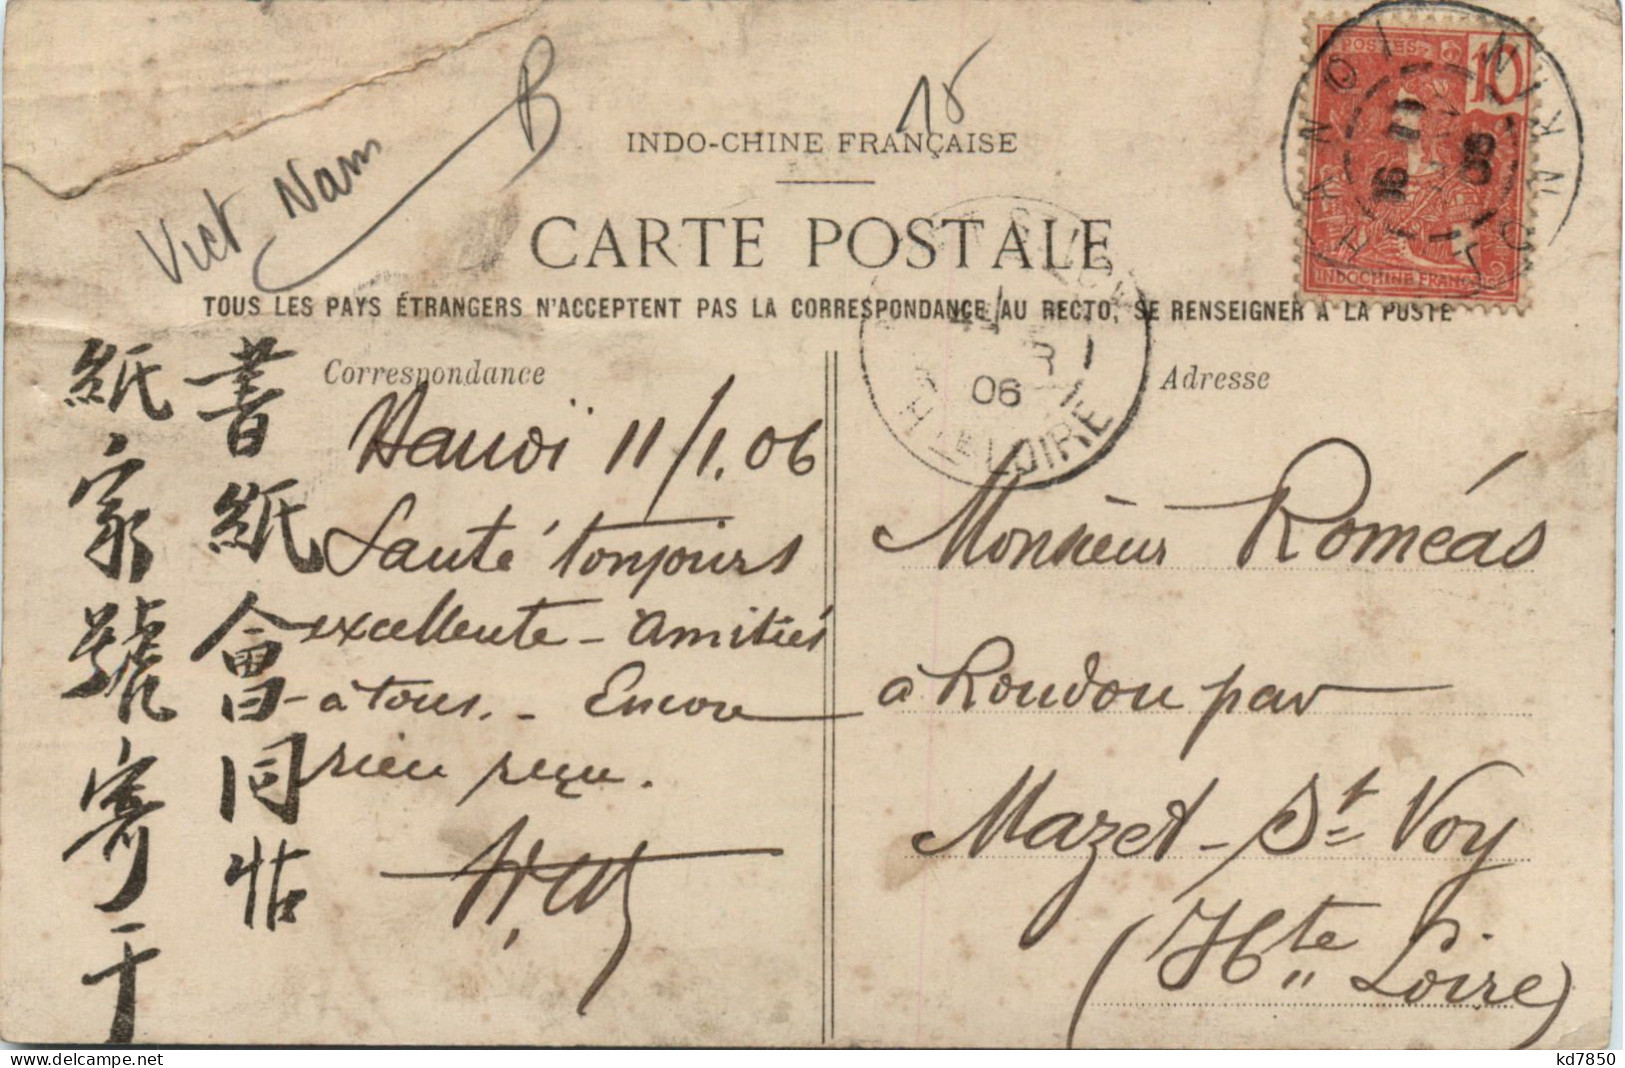 Viet Nam
B
15
INDO-CHINE FRANÇAISE
CARTE POSTALE
TOUS LES PAYS ÉTRANGERS N'ACCEPTENT PAS LA CORRESPONDANCE AU RECTO, SE RENSEIGNER A LA POSTE
POSTES
10
INDOCHINE FRANÇ
HANOI
TONKIN
11
06
06
Hte LOIRE
書紙會同帖
紙家號寄于
Correspondance
Hanoï 11/1.06
Santé toujours
excellente - Amitiés
à tous. - Encore
rien reçu.
Adresse
Monsieur Roméas
à Roudon par
Mazet - St Voy
(Hte Loire)
kd7850